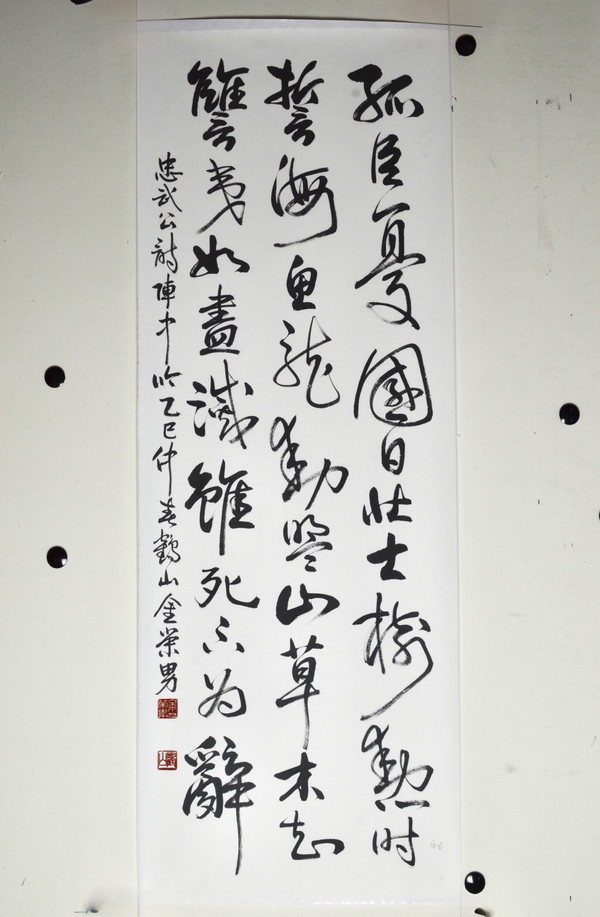 孤臣憂國日壮士樹勲时
誓海魚龍動盟山草木知
讐夷如盡滅雖死不为辭
忠武公詩陣中吟乙巳仲春鶴山金榮男